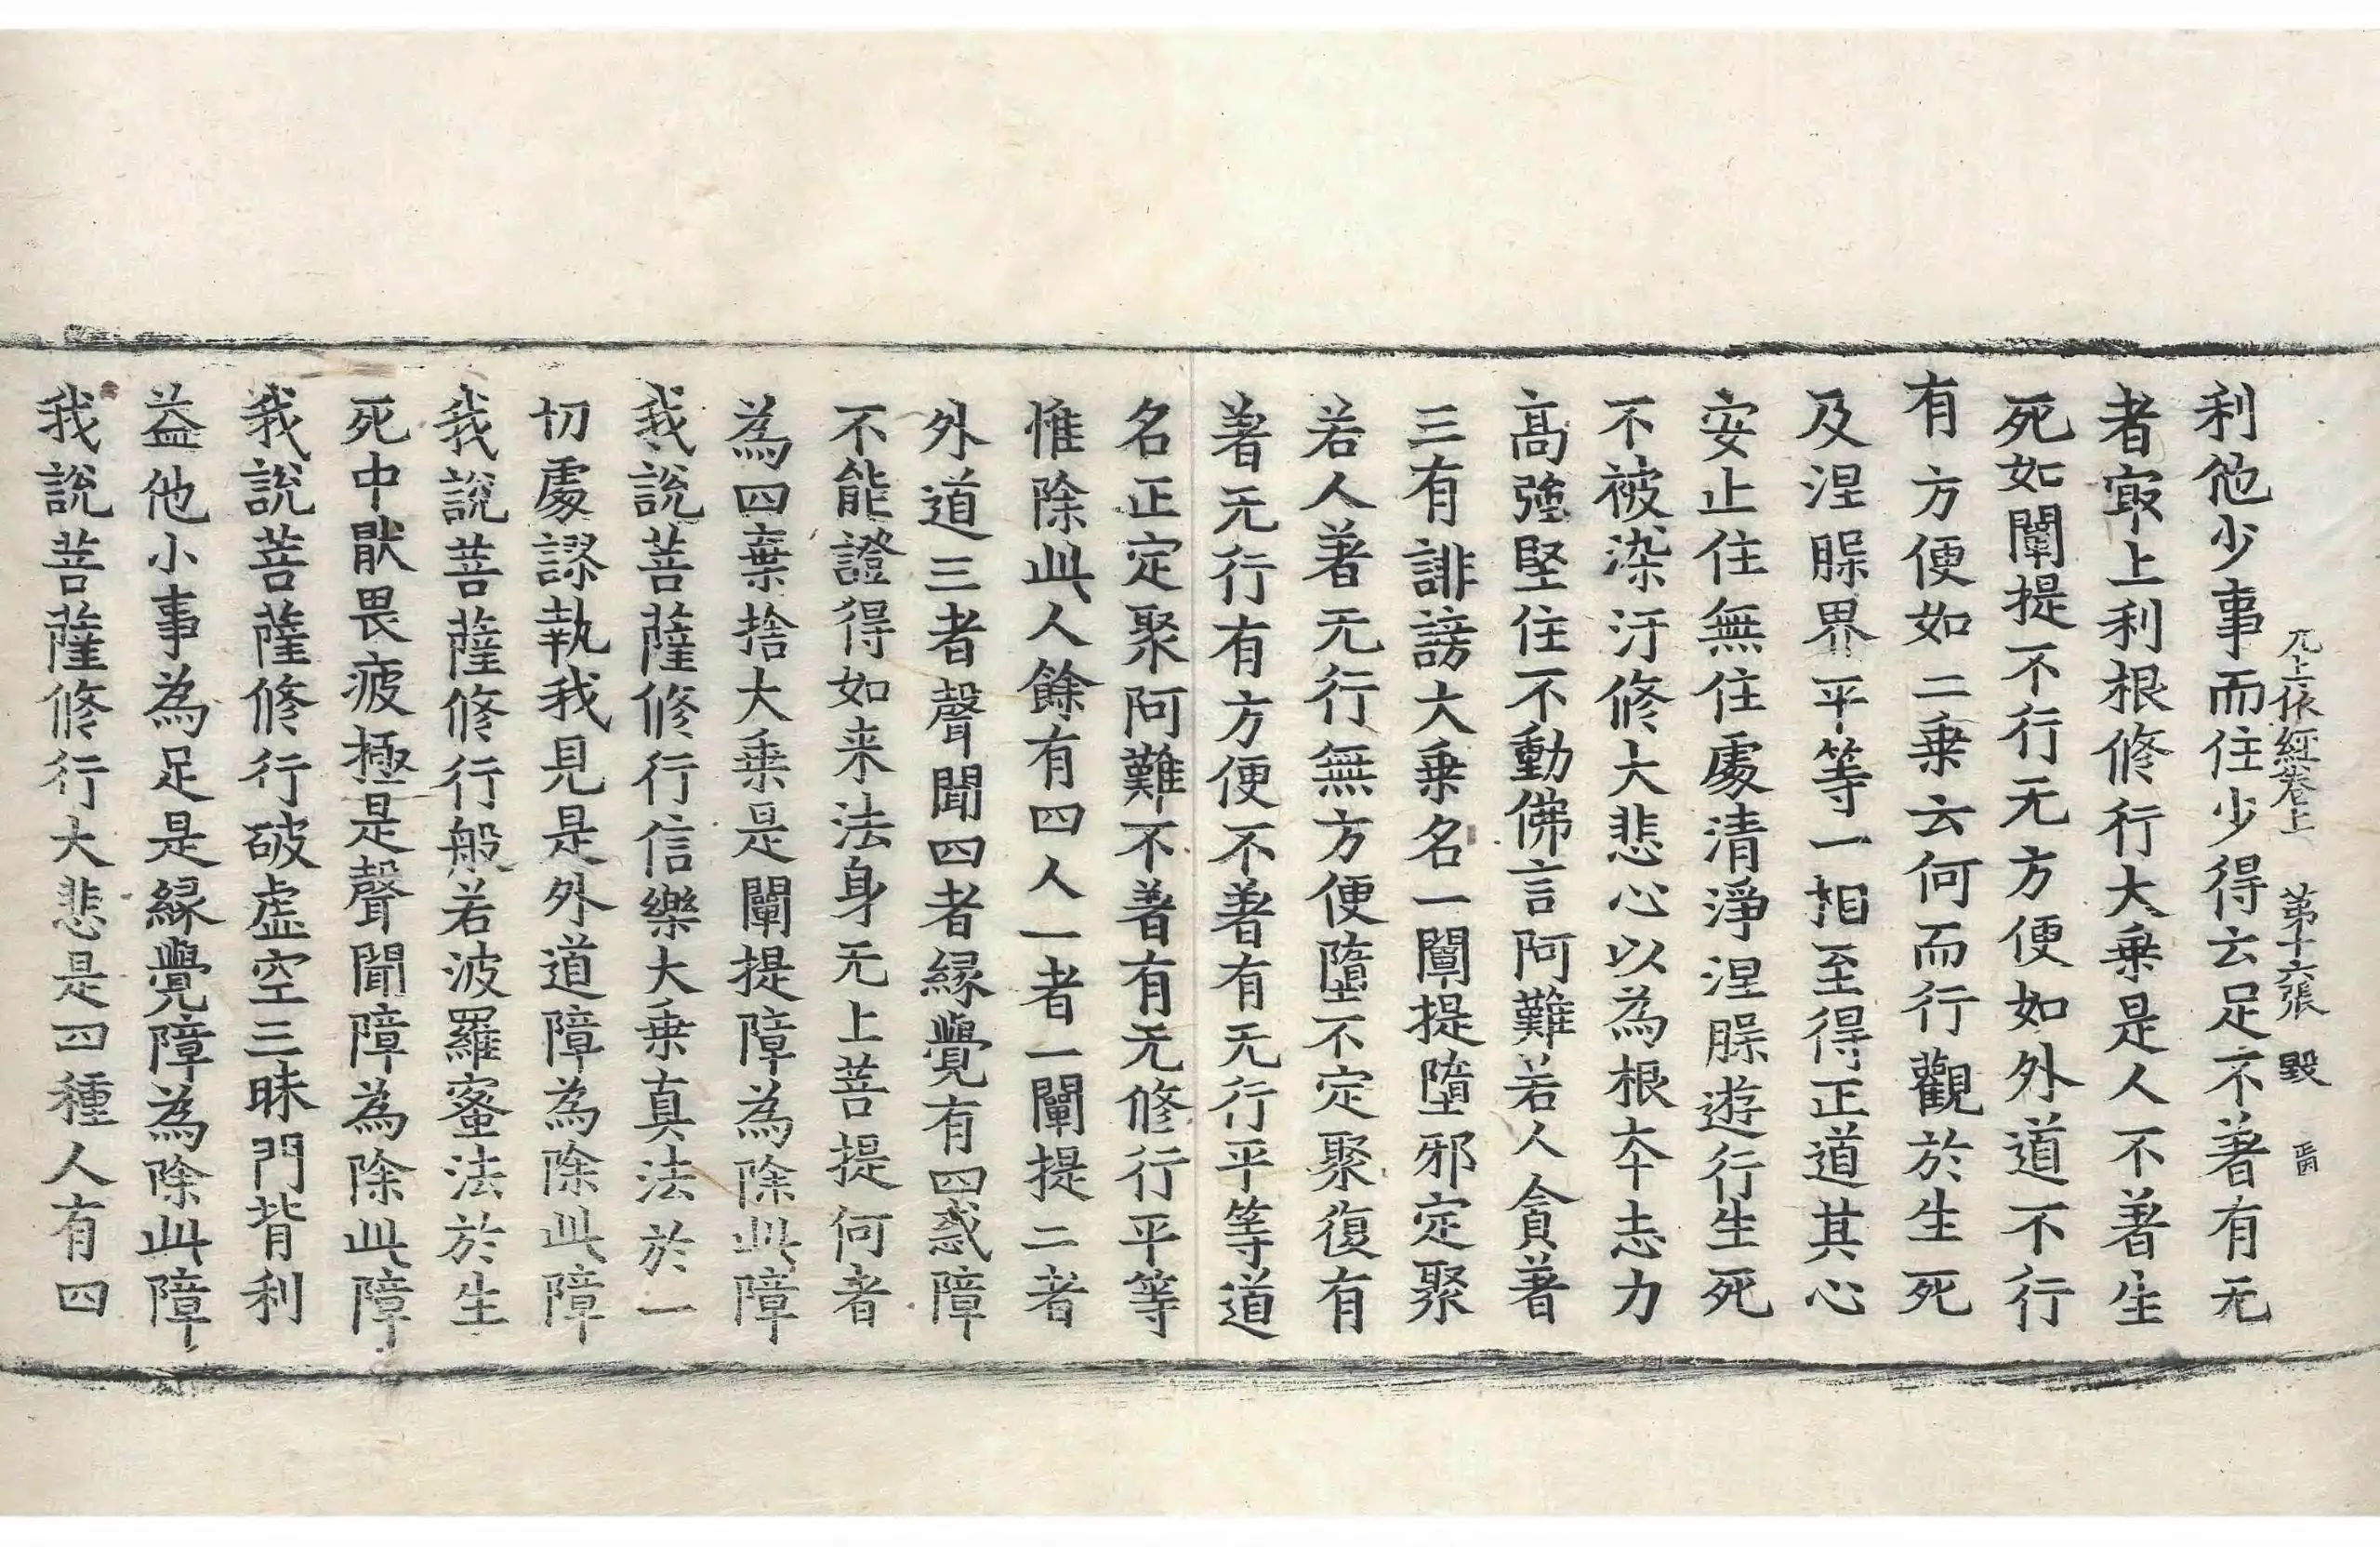 无上依經卷上 第十六張 毀
利他少事而住少得云足不著有无
者㝡上利根修行大乗是人不著生
死如闡提不行无方便如外道不行
有方便如二乗云何而行觀於生死
及涅槃界平等一相至得正道其心
安止住無住處清淨涅槃遊行生死
不被染汙修大悲心以為根夲志力
高強堅住不動佛言阿難若人貪著
三有誹謗大乗名一闡提墮邪定聚
若人著无行無方便墮不定聚復有
著无行有方便不著有无行平等道
名正定聚阿難不著有无修行平等
惟除此人餘有四人一者一闡提二者
外道三者聲聞四者縁覺有四惑障
不能證得如来法身无上菩提何者
為四棄捨大乗是闡提障為除此障
我說菩薩修行信樂大乗真法於一
切處謬執我見是外道障為除此障
我說菩薩修行般若波羅蜜法於生
死中猒畏疲極是聲聞障為除此障
我說菩薩修行破虛空三昧門背利
益他小事為足是縁覺障為除此障
我說菩薩修行大悲是四種人有四